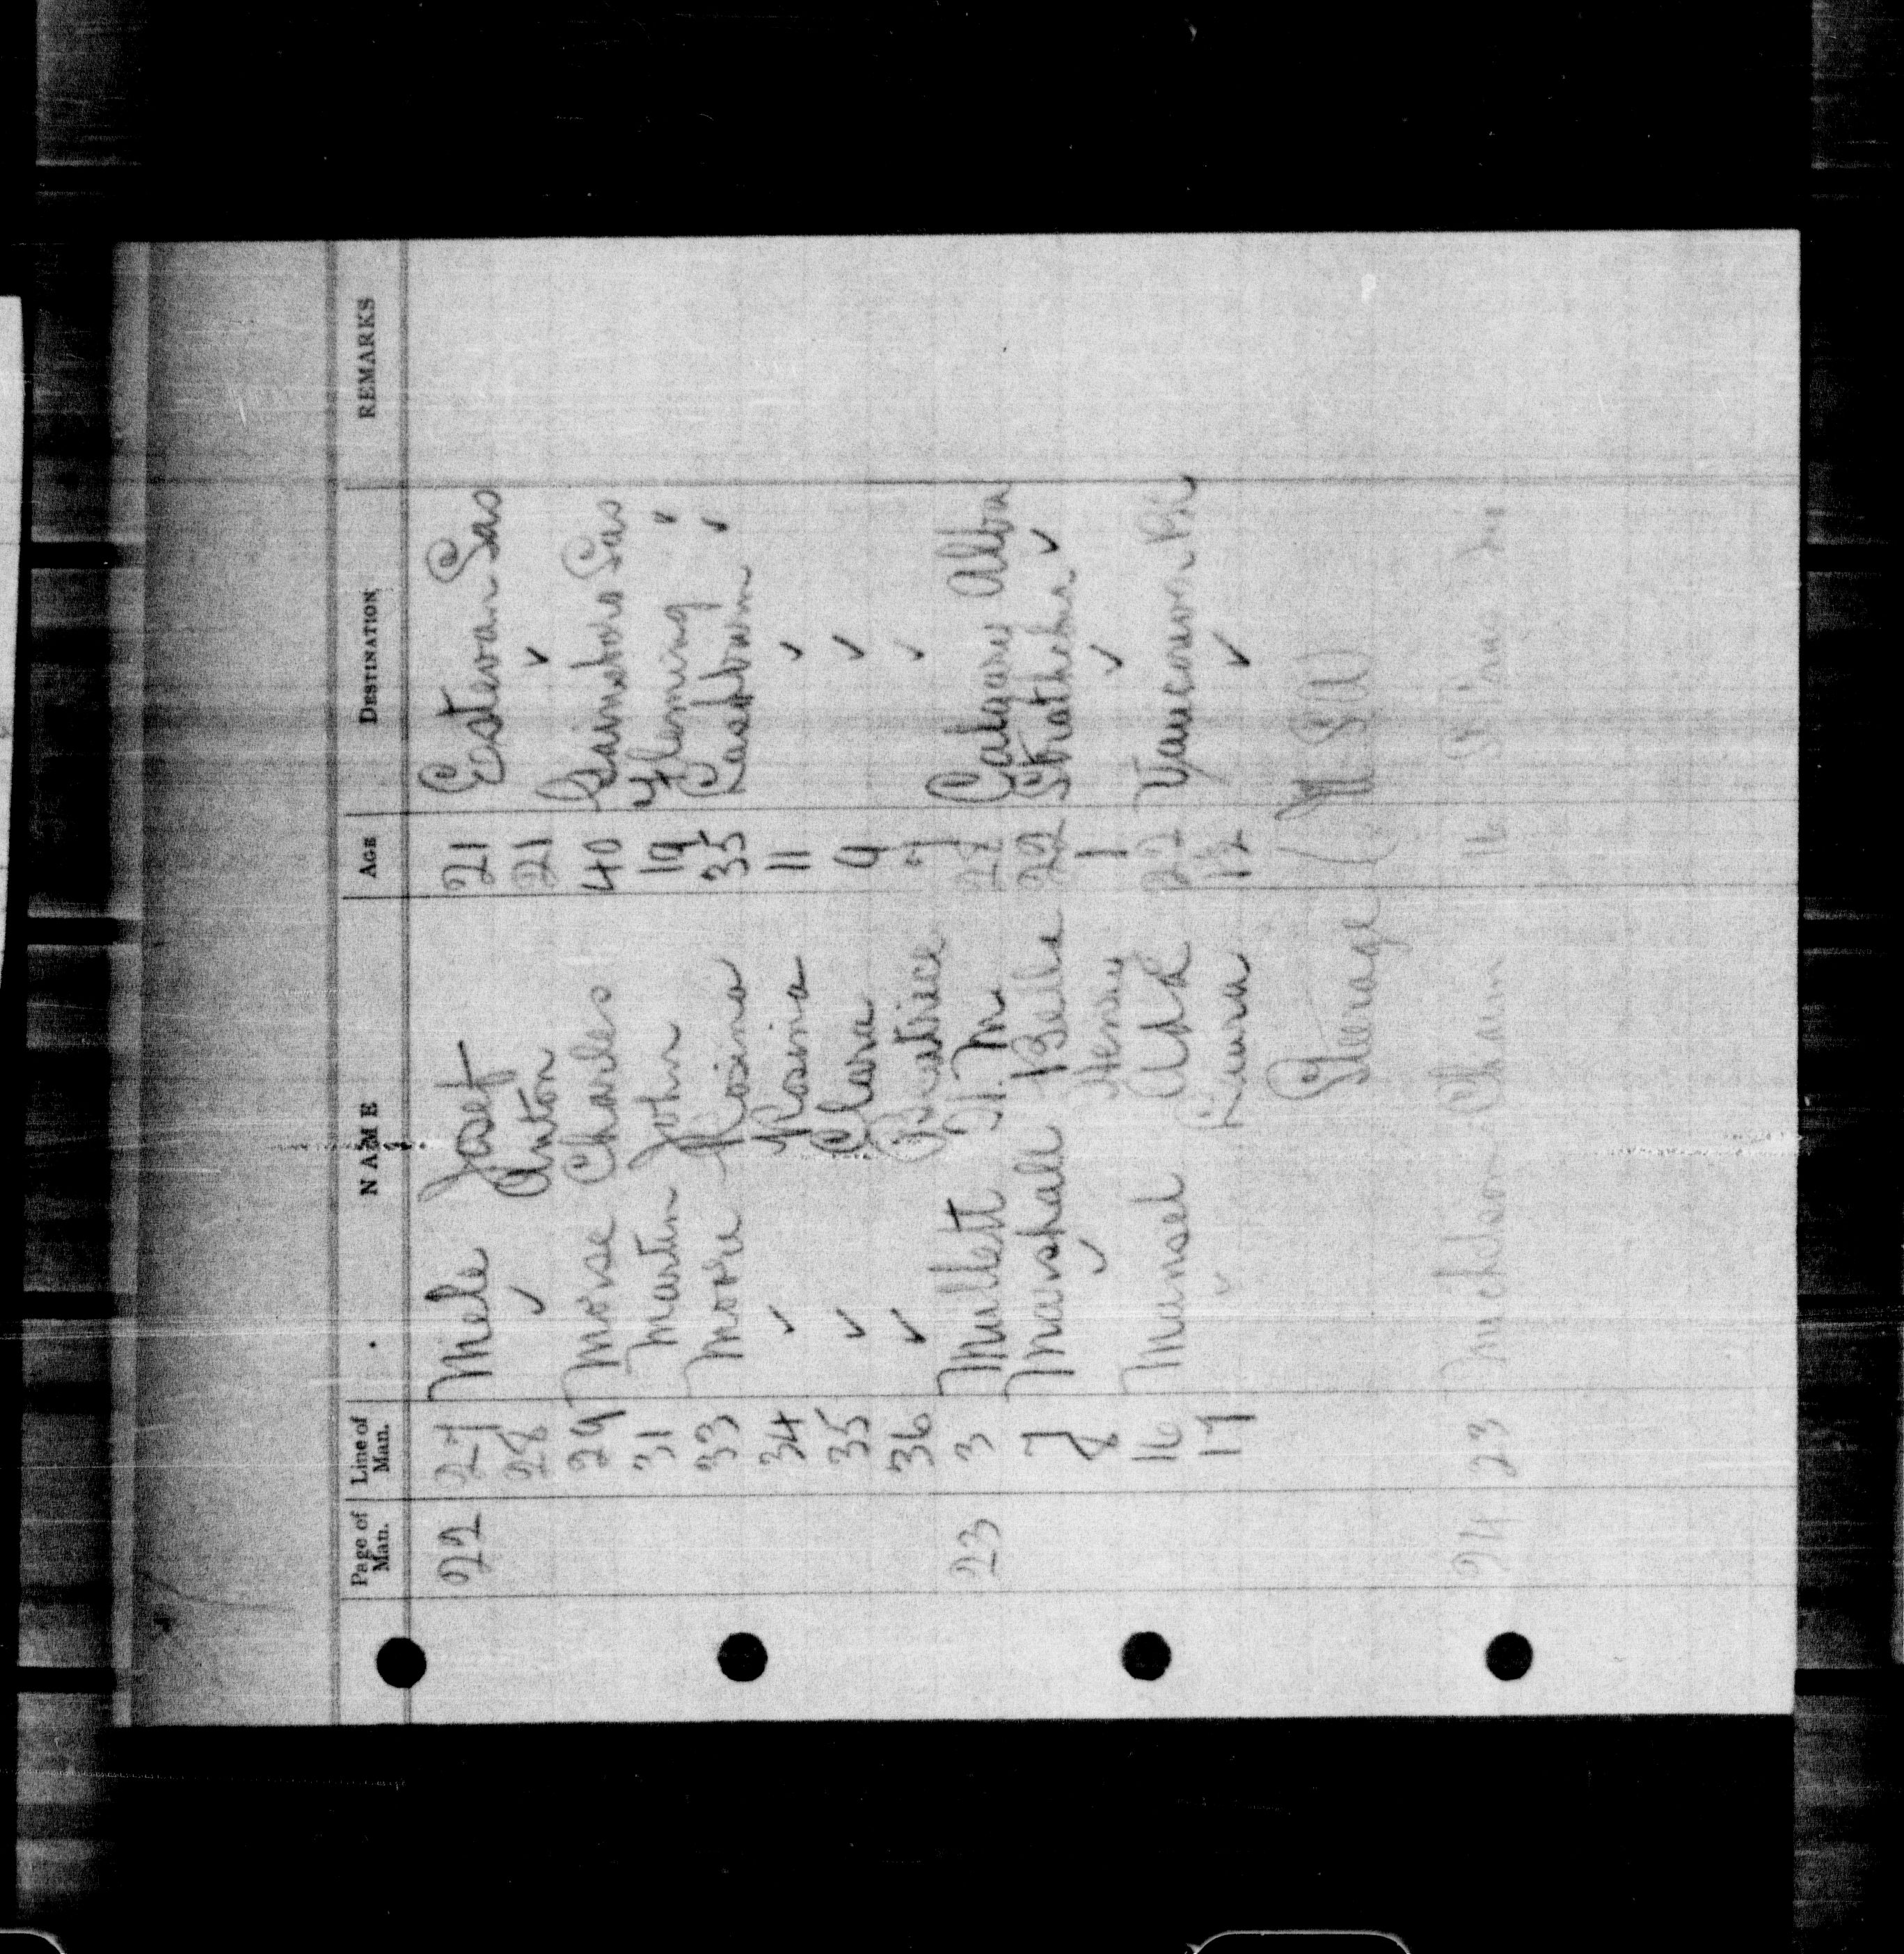 Page of Man. Line of Man. NAME AGE DESTINATION REMARKS
22 27 Mele Josef 21 Estevan Sas
28 ✓ Anton 21 ✓
29 Morse Charles 40 Gainsboro Sas
31 Martin John 19 Fleming "
33 Moore Rosina 35 Lashburn "
34 ✓ Rosina 11 ✓
35 ✓ Clara 9 ✓
36 ✓ Beatrice 7 ✓
23 3 Mullett H. M. Calgary Alba
7 Marshall Belle 22 Strathcona ✓
8 ✓ Henry 1 ✓
16 Munsel Ada 22 Vancouver BC
17 ✓ Laura 12 ✓
Steerage (U.S.A)
24 23 16